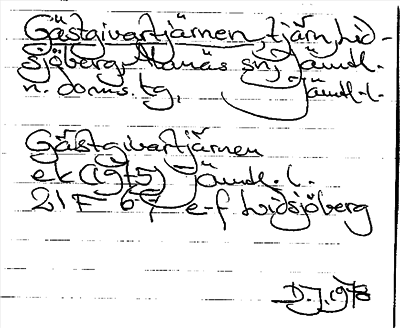 Gästgivartjärnen, tjärn, Lid-
sjöberg, Alanäs sn, Jämtl.
n. doms. tg, Jämtl. l.
Gästgivartjärnen
ek (1975) Jämtl. l.
21F 6-7 e-f Lidsjöberg
D.J. 1978